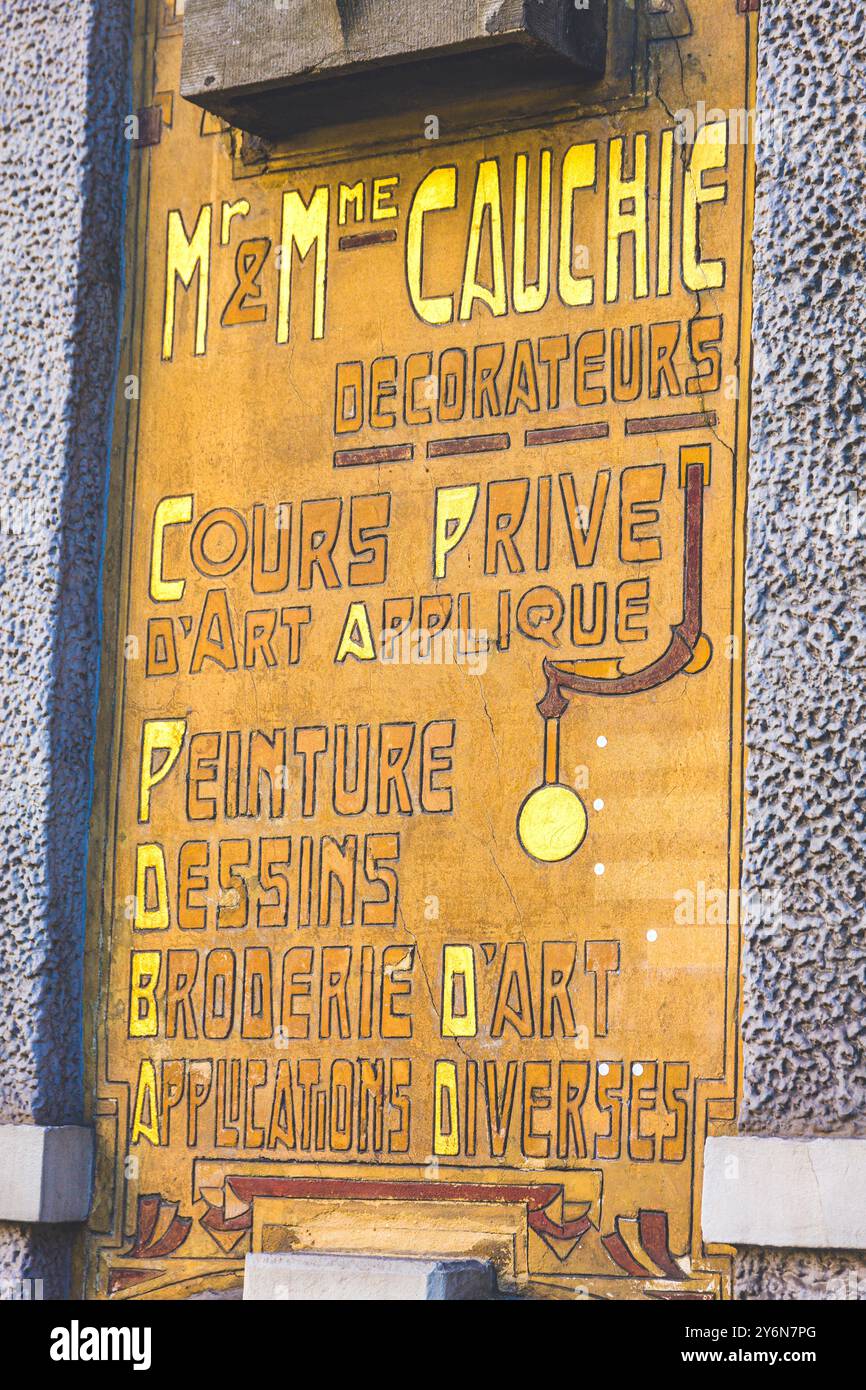 Mr & MME CAUCHIE
DECORATEURS
COURS PRIVE
D'ART APPLIQUE
PEINTURE
DESSINS
BRODERIE D'ART
APPLICATIONS DIVERSES
alamy
Image ID: 2Y6N7PG
www.alamy.com